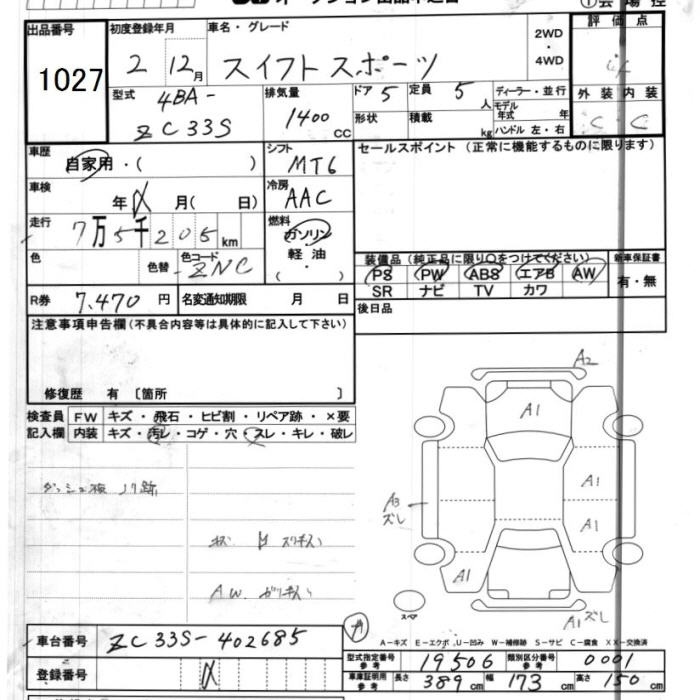 出品番号
1027
初度登録年月
2 12月
車名・グレード
スイフトスポーツ
2WD
・
4WD
評価点
外装 内装
C C
型式
4BA-
ZC33S
排気量
1400 cc
ドア 5
形状
定員 5 人
積載 kg
ディーラー・並行
モデル年式 年
ハンドル 左・右
車歴
自家用・( )
シフト
MT6
車検
年 月( 日)
冷房
AAC
走行
7万5千205km
燃料
ガソリン
軽油
色
色替
色コード
ZNC
R券 7,470円
名変通知期限 月 日
セールスポイント (正常に機能するものに限ります)
装備品 (純正品に限り○をつけてください)
PS PW ABS エアB AW
SR ナビ TV カワ
新車保証書
有・無
後日品
注意事項申告欄(不具合内容等は具体的に記入して下さい)
修復歴 有 〔箇所 〕
検査員記入欄
FW キズ・飛石・ヒビ割・リペア跡・×要
内装 キズ・汚レ・コゲ・穴・スレ・キレ・破レ
A2
A1
A1
A1
A3
ズレ
A1
A1ズレ
スペア
A-キズ E-エクボ U-凹み W-補修跡 S-サビ C-腐食 XX-交換済
車台番号 ZC33S-402685
登録番号
型式指定番号 参考 19506
類別区分番号 参考 0001
車庫証明用 参考 長さ 389cm 幅 173cm 高さ 150cm